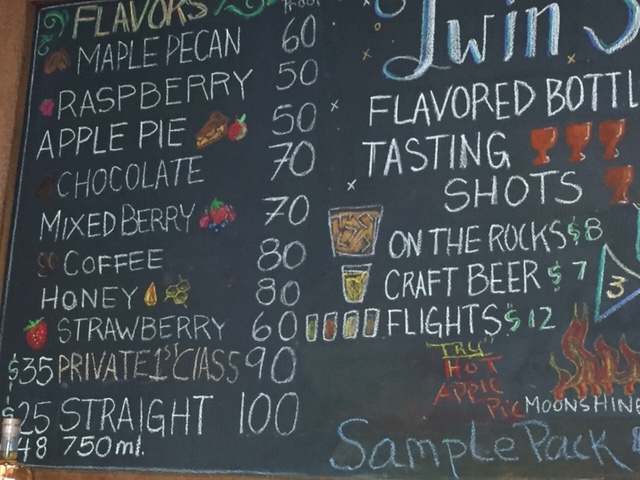 FLAVORS Proof
MAPLE PECAN 60
RASPBERRY 50
APPLE PIE 50
CHOCOLATE 70
MIXED BERRY 70
COFFEE 80
HONEY 80
STRAWBERRY 60
$35 PRIVATE 1ST CLASS 90
$25 STRAIGHT 100
48 750ml.
Twin
FLAVORED BOTTL
TASTING
SHOTS
ON THE ROCKS $8
CRAFT BEER $7
FLIGHTS $12
3
"TRY"
HOT
APPLE
PIE
MOONSHINE
Sample Pack